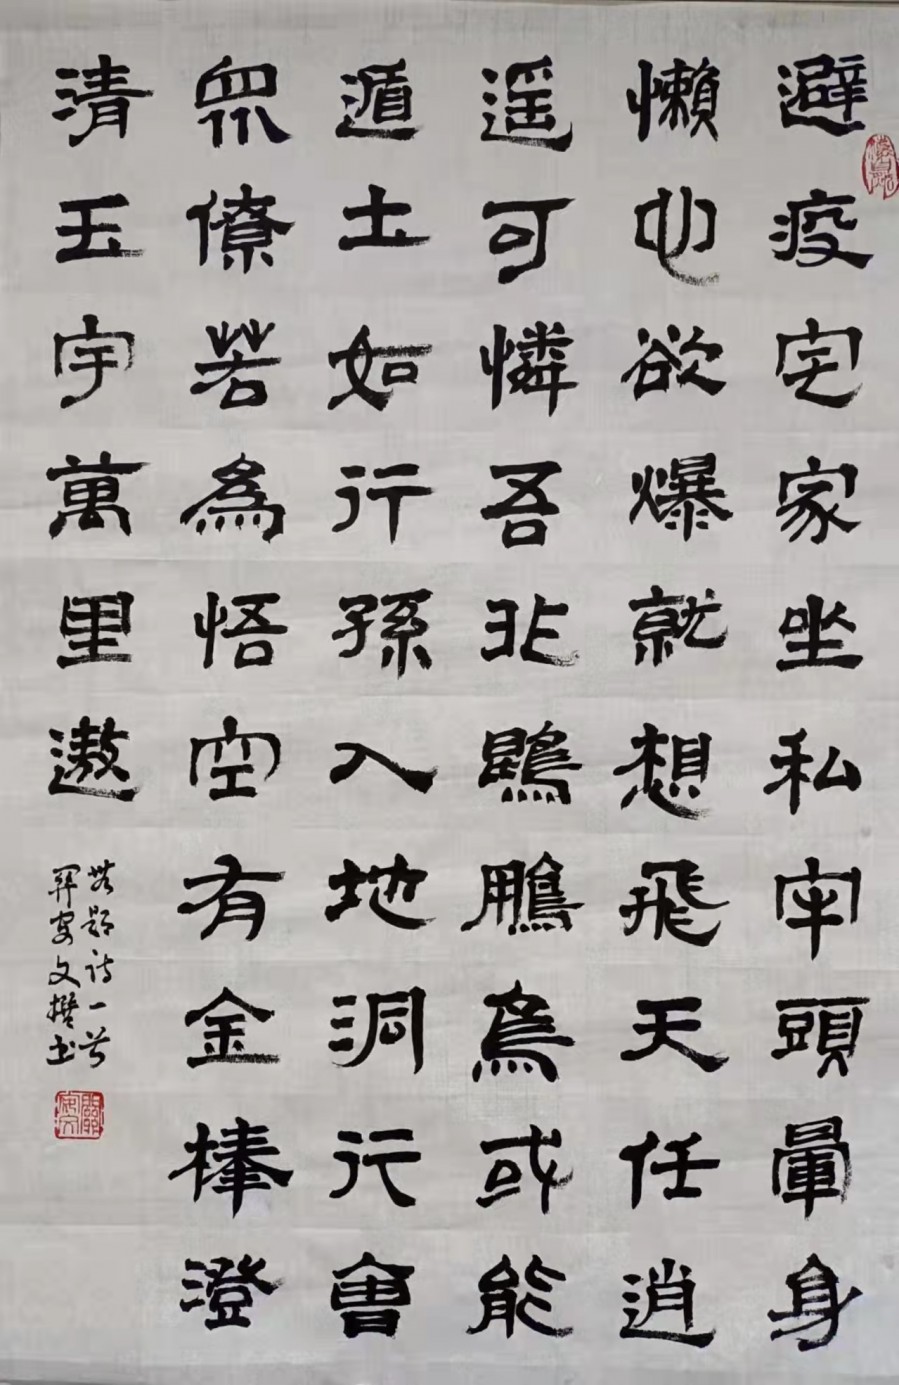 避疫宅家坐私牢頭暈身
懶心欲爆就想飛天任逍
遥可憐吾非鵾鵬鳥或能
遁土如行孫入地洞行會
衆僚若為悟空有金棒澄
清玉宇萬里遨
無題詩一首
関安文撰书